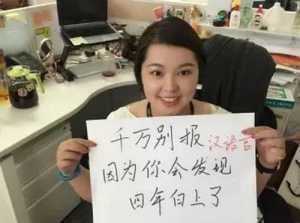 千万别报汉语言
因为你会发现
四年白上了